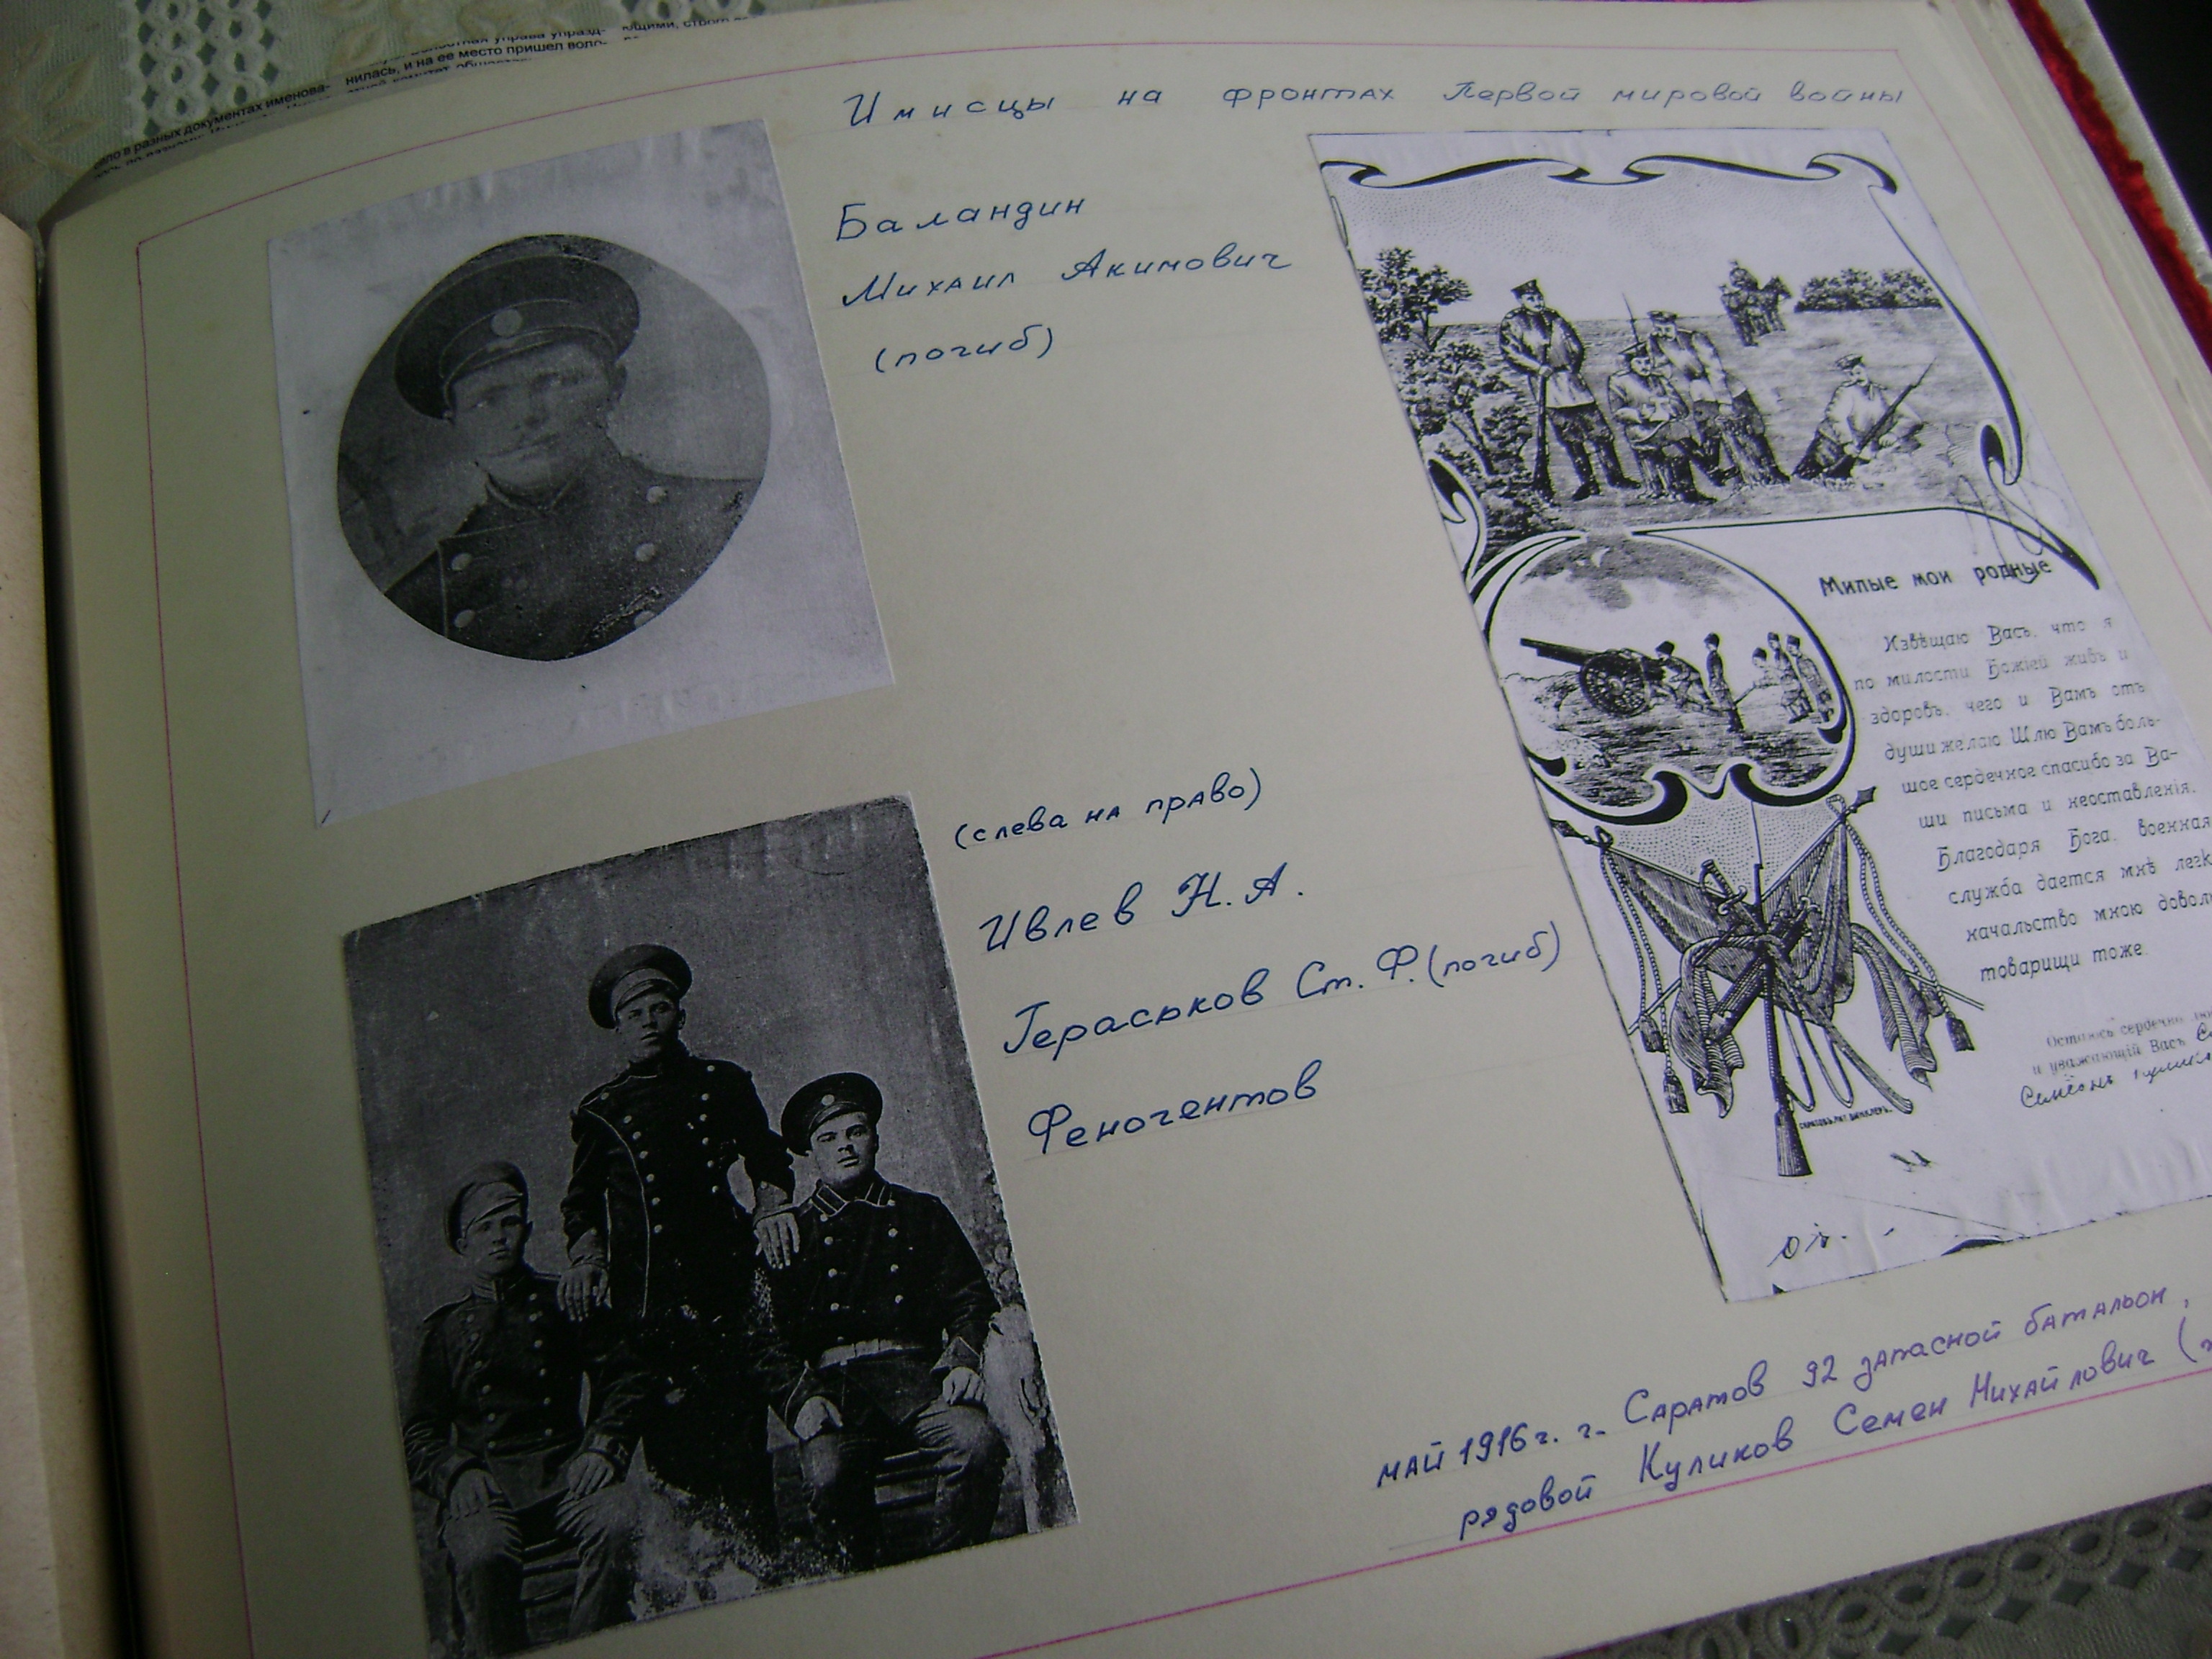 нилась, и на ее место пришел воло-
в разных документах именова-
Имисцы на фронтах Первой мировой войны
Баландин
Михаил Акимович
(погиб)
(слева на право)
Ивлев Н. А.
Гераськов Ст. Ф. (погиб)
Феногентов
Милые мои родные
Извѣщаю Васъ, что я
по милости Божіей живъ и
здоровъ, чего и Вамъ отъ
души желаю Шлю Вамъ боль-
шое сердечное спасибо за Ва-
ши письма и неоставленія.
Благодаря Бога, военная
служба дается мнѣ
начальство мною
товарищи тоже.
Остаюсь сердечно
и уважающій Васъ
Семёнъ
май 1916г. г. Саратов 92 запасной батальон,
рядовой Куликов Семен Михайлович